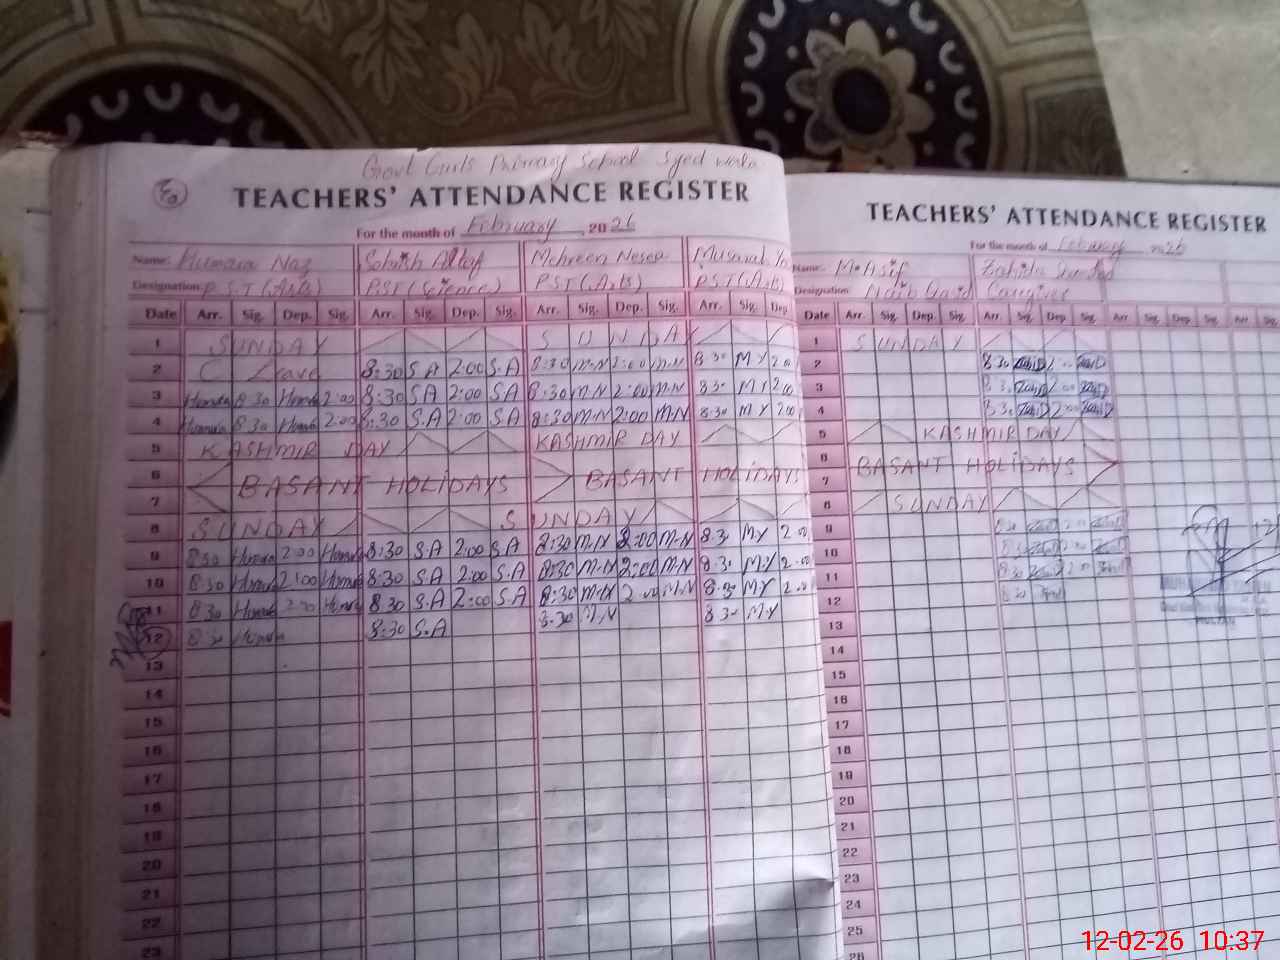 Govt Girls Primary School Syed wala
TEACHERS' ATTENDANCE REGISTER
For the month of February, 2026
Name: Humaira Naz Mehreen Musarat
Designation: P.S.T(Arts) P.S.T(Science) P.S.T(Arts) P.S.T(Arts)
Date Arr. Sig. Dep. Sig. Arr. Sig. Dep. Sig. Arr. Sig. Dep. Sig. Arr. Sig. Dep
1 SUNDAY SUNDA
2 C Leave 8:30 S.A 2:00 S.A 8:30 M.N 2:00 M.N 8:30 M.Y 2:00
3 Humaira 8:30 Humaira 2:00 8:30 S.A 2:00 S.A 8:30 M.N 2:00 M.N 8:30 M.Y 2:00
4 Humaira 8:30 Humaira 2:00 8:30 S.A 2:00 S.A 8:30 M.N 2:00 M.N 8:30 M.Y 2:00
5 KASHMIR DAY KASHMIR DAY
6 BASANT HOLIDAYS BASANT HOLIDAYS
7
8 SUNDAY SUNDAY
9 8:30 Humaira 2:00 Humaira 8:30 S.A 2:00 S.A 8:30 M.N 2:00 M.N 8:30 M.Y 2:00
10 8:30 Humaira 2:00 Humaira 8:30 S.A 2:00 S.A 8:30 M.N 2:00 M.N 8:30 M.Y 2:00
11 8:30 Humaira 2:00 Humaira 8:30 S.A 2:00 S.A 8:30 M.N 2:00 M.N 8:30 M.Y 2:00
12 8:30 Humaira 8:30 S.A 8:30 M.N 8:30 M.Y
13
14
15
16
17
18
19
20
21
22
23
TEACHERS' ATTENDANCE REGISTER
For the month of February 2026
Name: M.Asif Zahida
Designation: Naib Qasid Caregiver
Date Arr. Sig. Dep. Sig. Arr. Sig. Dep Sig. Arr. Sig. Dep. Sig. Arr Sig.
1 SUNDAY
2 8:30 2:00
3 8:30 2:00
4 8:30 2:00
5 KASHMIR DAY
6 BASANT HOLIDAYS
7
8 SUNDAY
9 8:30 2:00
10 8:30 2:00
11 8:30 2:00
12 8:30
13
14
15
16
17
18
19
20
21
22
23
24
25
26
12-02-26 10:37